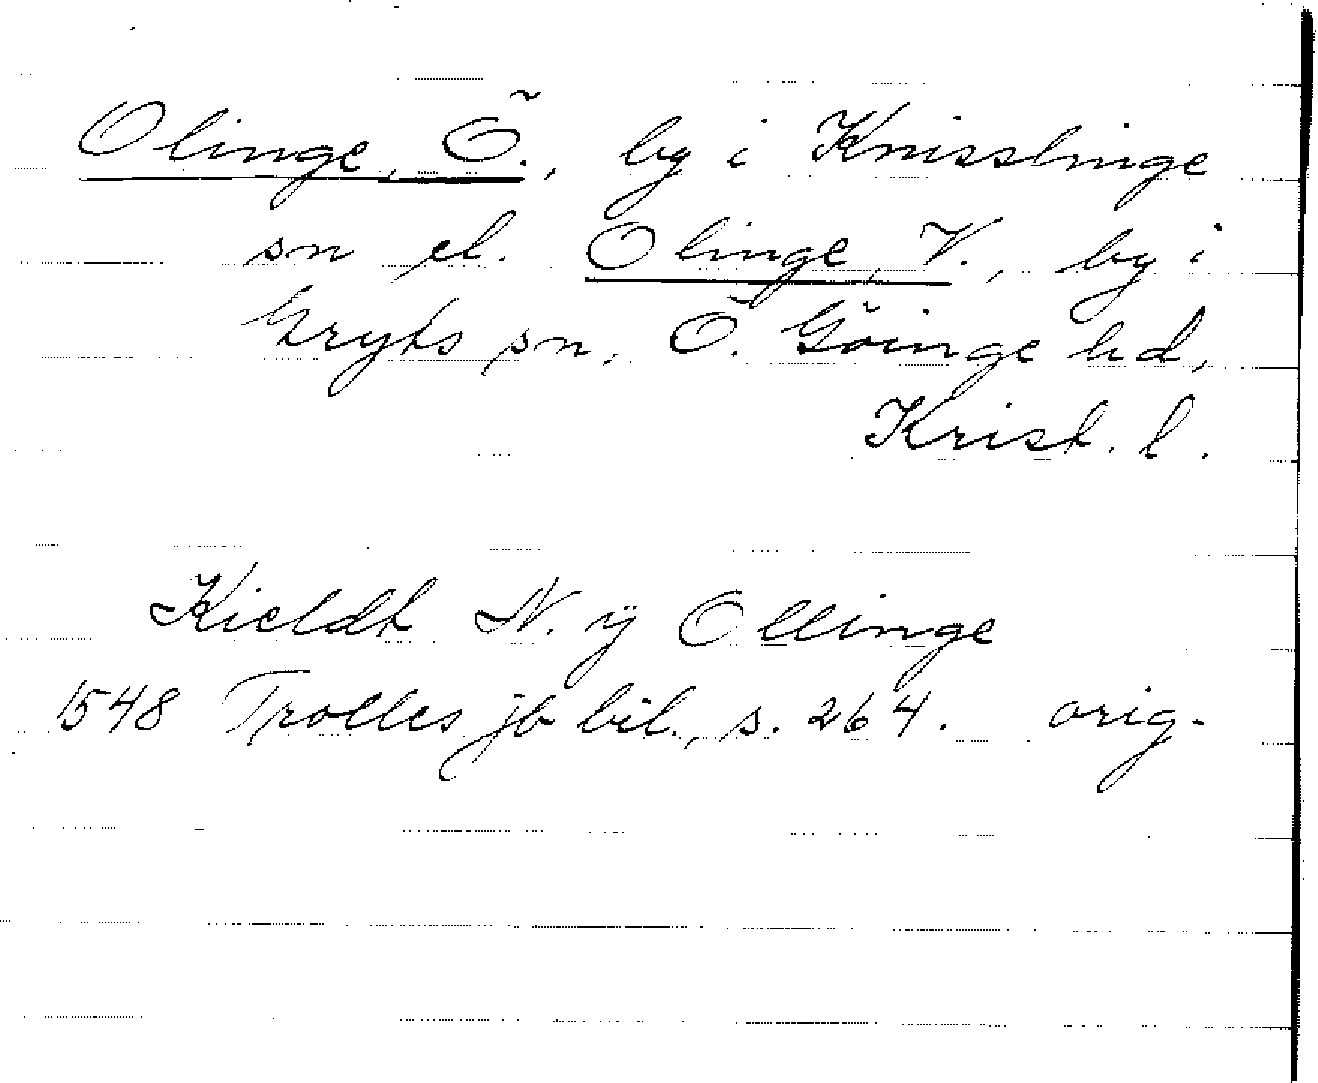 Olinge, Ö., by i Knisslinge
sn el. Olinge, V., by i
Gryts sn, Ö. Göinge hd,
Krist. l.
Kieldt N. ÿ Ollinge
1548 Trolles jb bil., s. 264. orig.